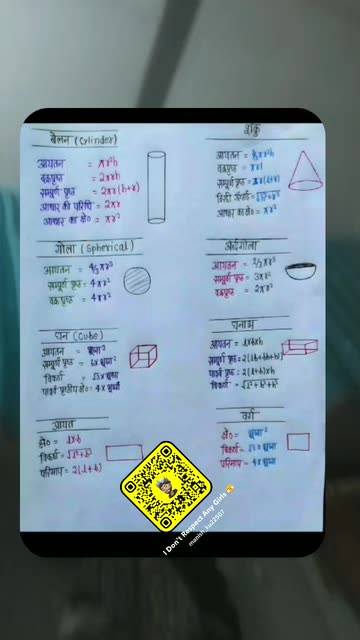 बेलन (Cylinder)
आयतन = πr²h
वक्रपृष्ठ = 2πrh
सम्पूर्ण पृष्ठ = 2πr(h+r)
आधार की परिधि = 2πr
आधार का क्षे० = πr²
शंकु
आयतन = ⅓πr²h
वक्रपृष्ठ = πrl
सम्पूर्ण पृष्ठ = πr(l+r)
आधार का क्षे० = πr²
गोला (Spherical)
आयतन = 4/3πr³
सम्पूर्ण पृष्ठ = 4πr²
वक्रपृष्ठ = 4πr²
अर्द्धगोला
आयतन = 2/3πr³
सम्पूर्ण पृष्ठ = 3πr²
वक्रपृष्ठ = 2πr²
घन (Cube)
आयतन =
सम्पूर्ण पृष्ठ = 6x भुजा²
विकर्ण = √3 x भुजा
घनाभ
आयतन = lxbxh
सम्पूर्ण पृष्ठ = 2(lb+bh+hl)
पार्श्व पृष्ठ = 2(l+b)xh
विकर्ण = √l²+b²+h²
आयत
क्षे० = lxb
विकर्ण = √l²+b²
परिमाप = 2(l+b)
वर्ग
क्षे० = भुजा²
विकर्ण = √2 x भुजा
परिमाप = 4x भुजा
I Don't Respect Any Girls